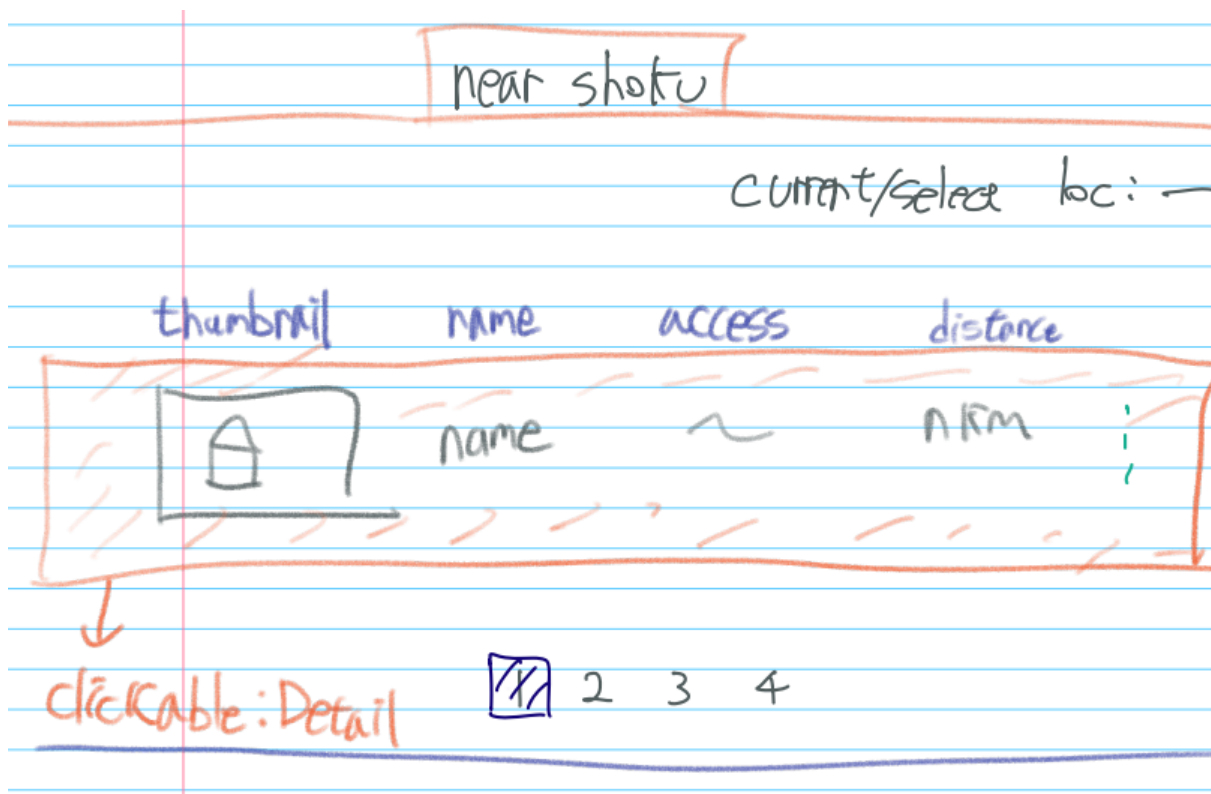 near shoku
current/select loc:
thumbnail name access distance
name nkm
clickable: Detail
1 2 3 4